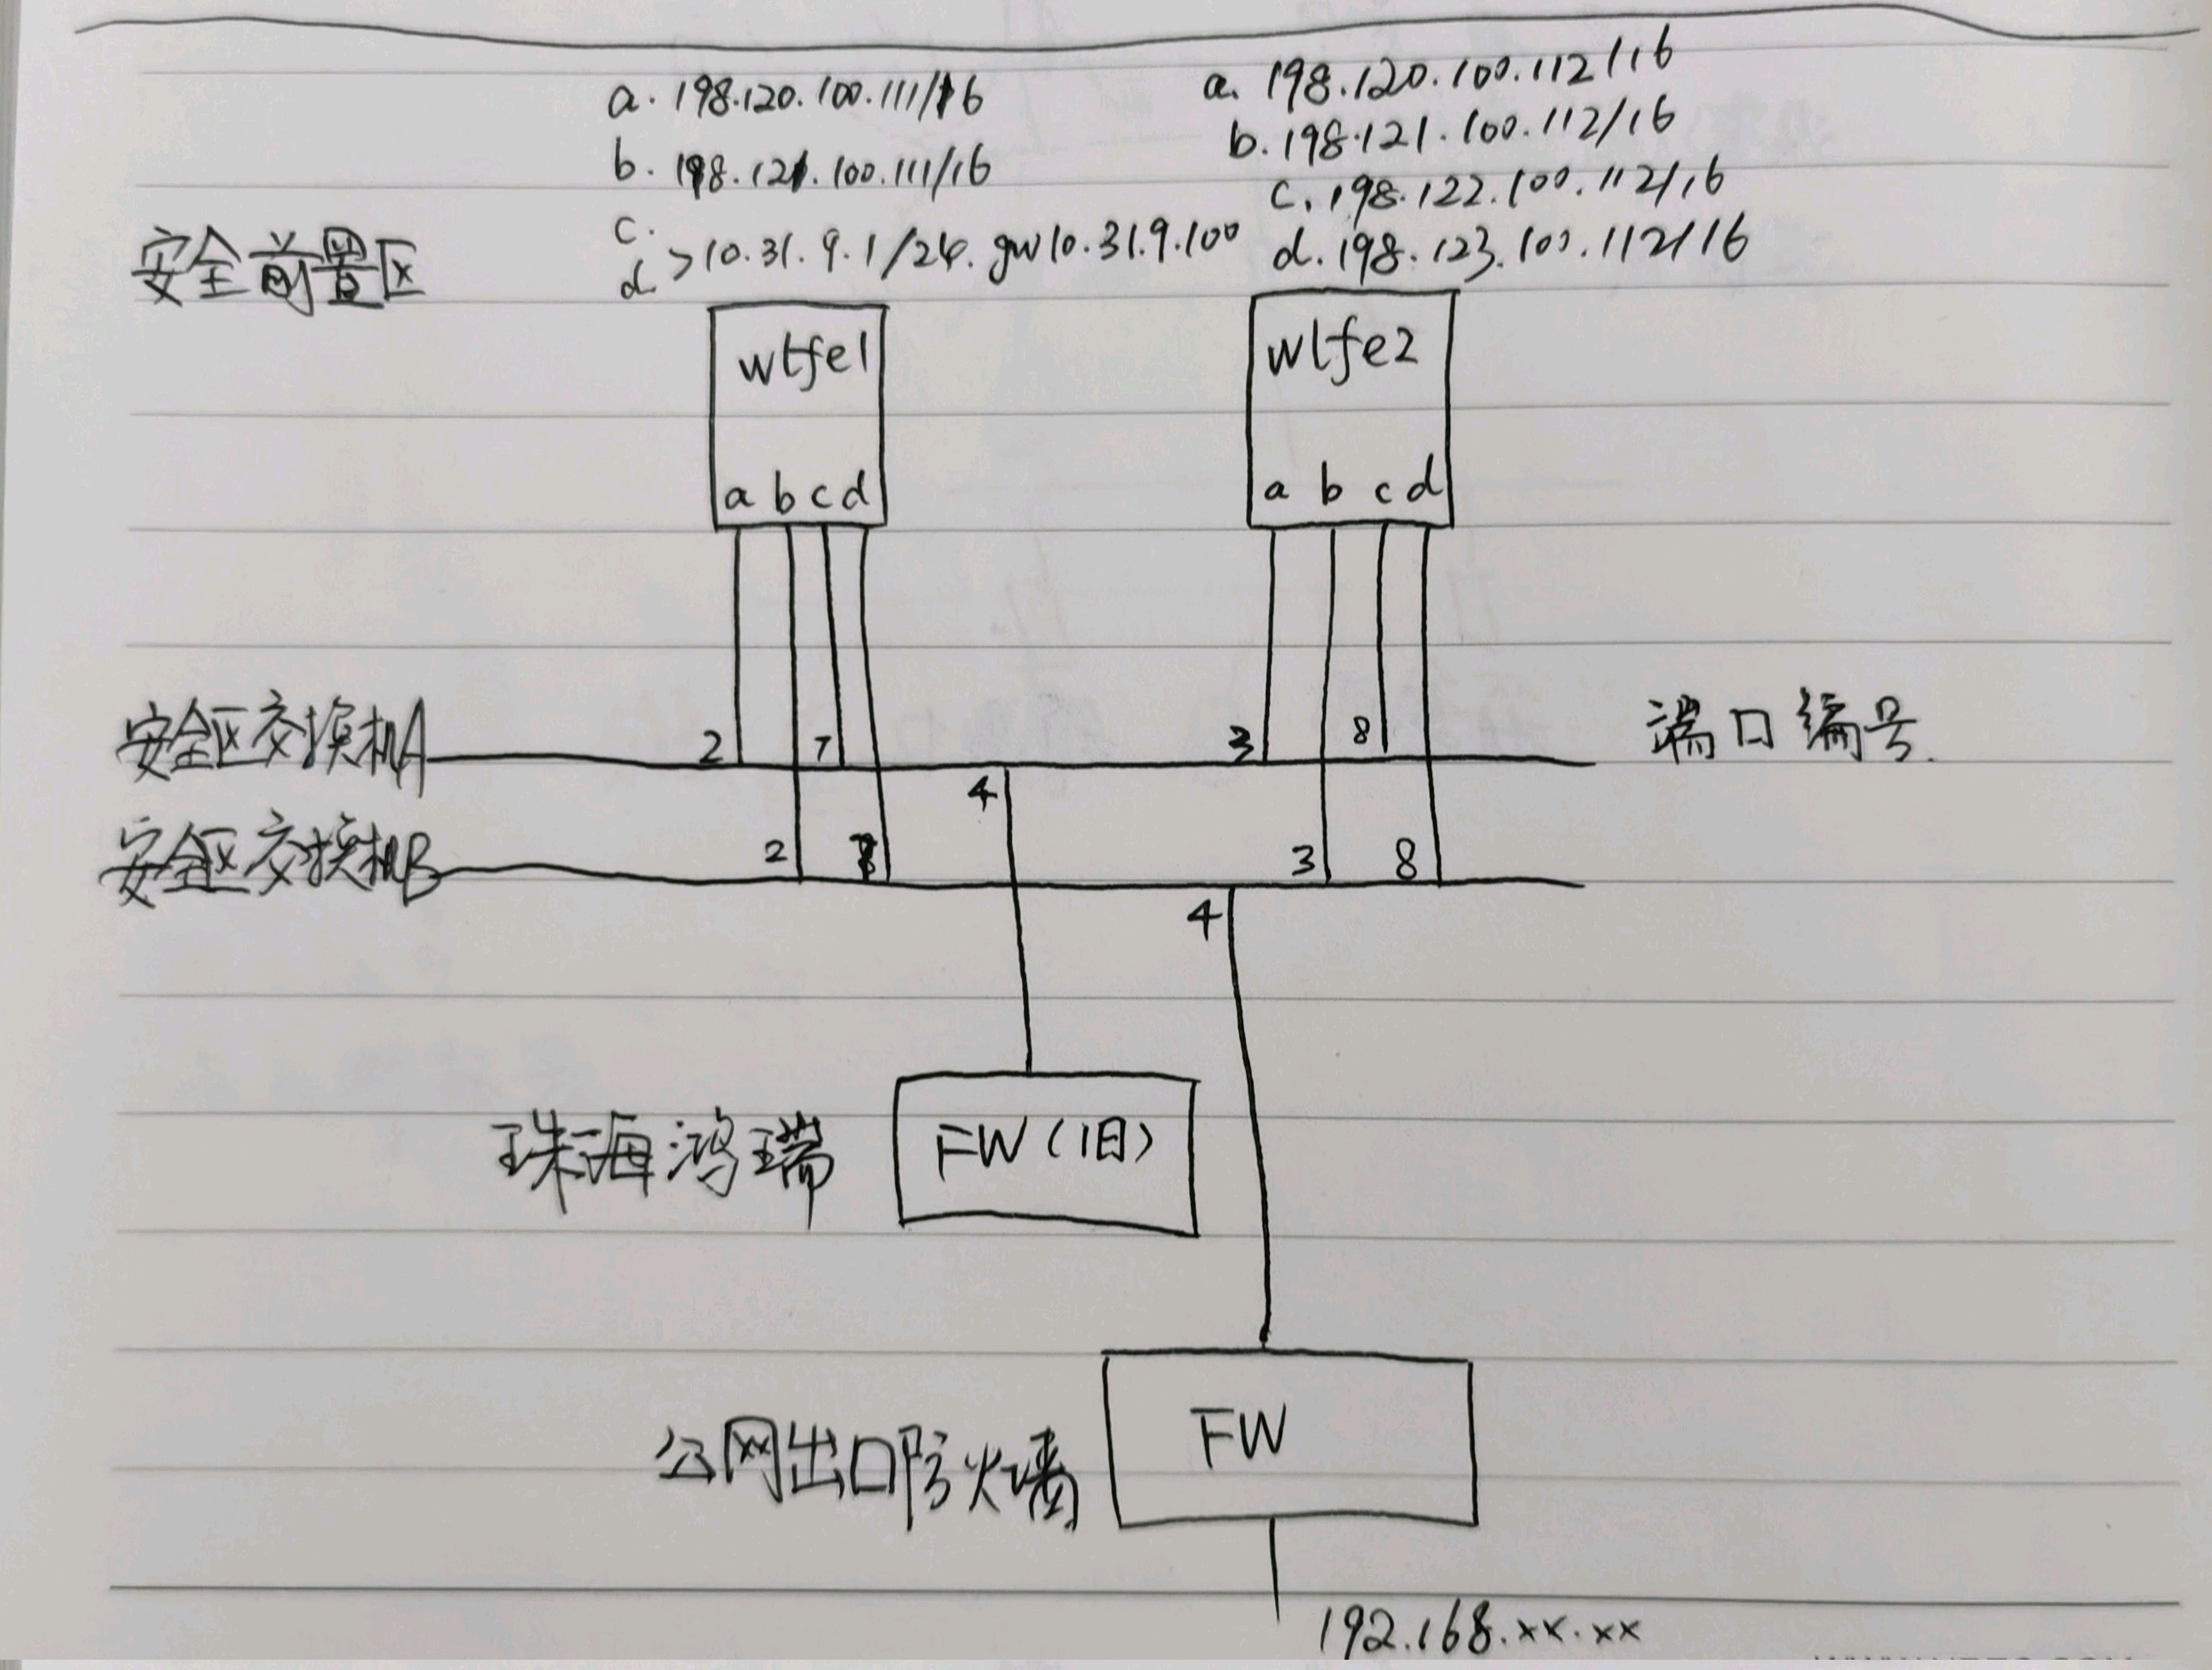 a. 198.120.100.111/16
b. 198.121.100.111/16
c.
d. >10.31.9.1/24. gw10.31.9.100
a. 198.120.100.112/16
b. 198.121.100.112/16
c. 198.122.100.112/16
d. 198.123.100.112/16
安全前置区
wlfe1
a b c d
wlfe2
a b c d
安全区交换机A
2 7
4
3 8
端口编号.
安全区交换机B
2
3 8
4
珠海鸿瑞
FW(旧)
公网出口防火墙
FW
192.168.xx.xx